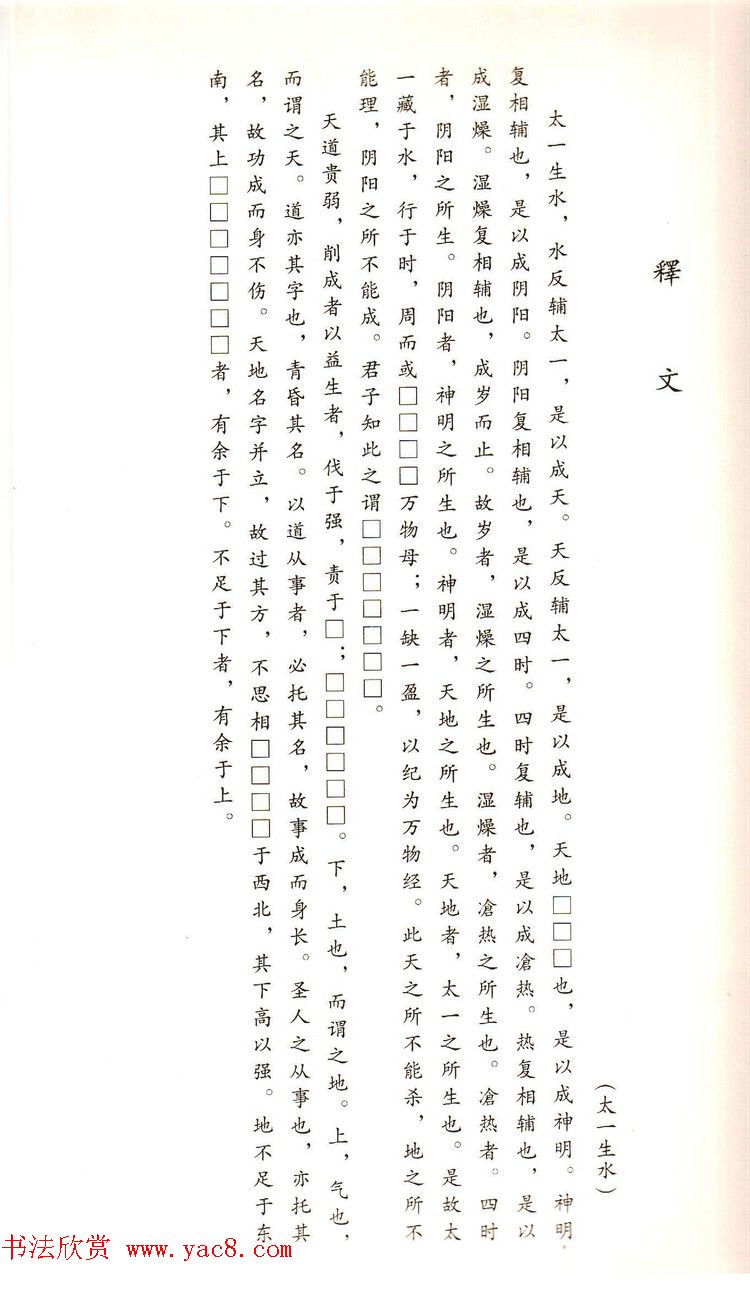 釋文
（太一生水）
太一生水，水反辅太一，是以成天。天反辅太一，是以成地。天地□□□也，是以成神明。神明
复相辅也，是以成阴阳。阴阳复相辅也，是以成四时。四时复辅也，是以成凔热。热复相辅也，是以
成湿燥。湿燥复相辅也，成岁而止。故岁者，湿燥之所生也。湿燥者，凔热之所生也。凔热者。四时
者，阴阳之所生。阴阳者，神明之所生也。神明者，天地之所生也。天地者，太一之所生也。是故太
一藏于水，行于时，周而或□□□□万物母；一缺一盈，以纪为万物经。此天之所不能杀，地之所不
能理，阴阳之所不能成。君子知此之谓□□□□□□□。
天道贵弱，削成者以益生者，伐于强，责于□；□□□□□□。下，土也，而谓之地。上，气也，
而谓之天。道亦其字也，青昏其名。以道从事者，必托其名，故事成而身长。圣人之从事也，亦托其
名，故功成而身不伤。天地名字并立，故过其方，不思相□□□□于西北，其下高以强。地不足于东
南，其上□□□□□□□者，有余于下。不足于下者，有余于上。
书法欣赏 www.yac8.com